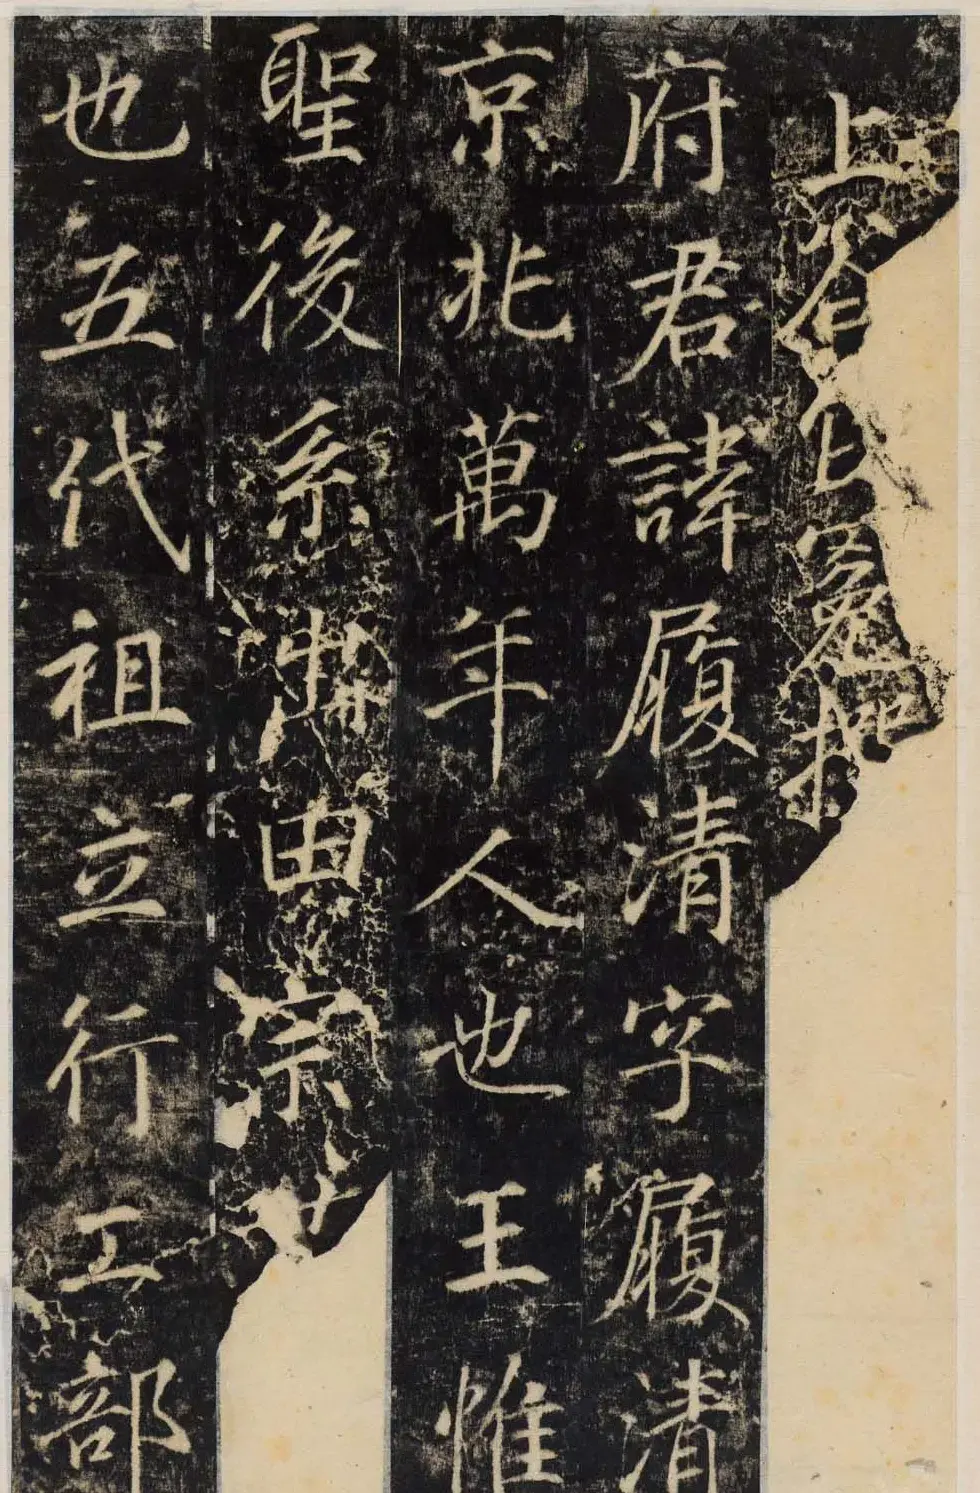 上冕
府君諱履清字履清
京兆萬年人也王惟
聖後系由宗
也五代祖立行工部